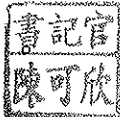 書記官
陳可欣